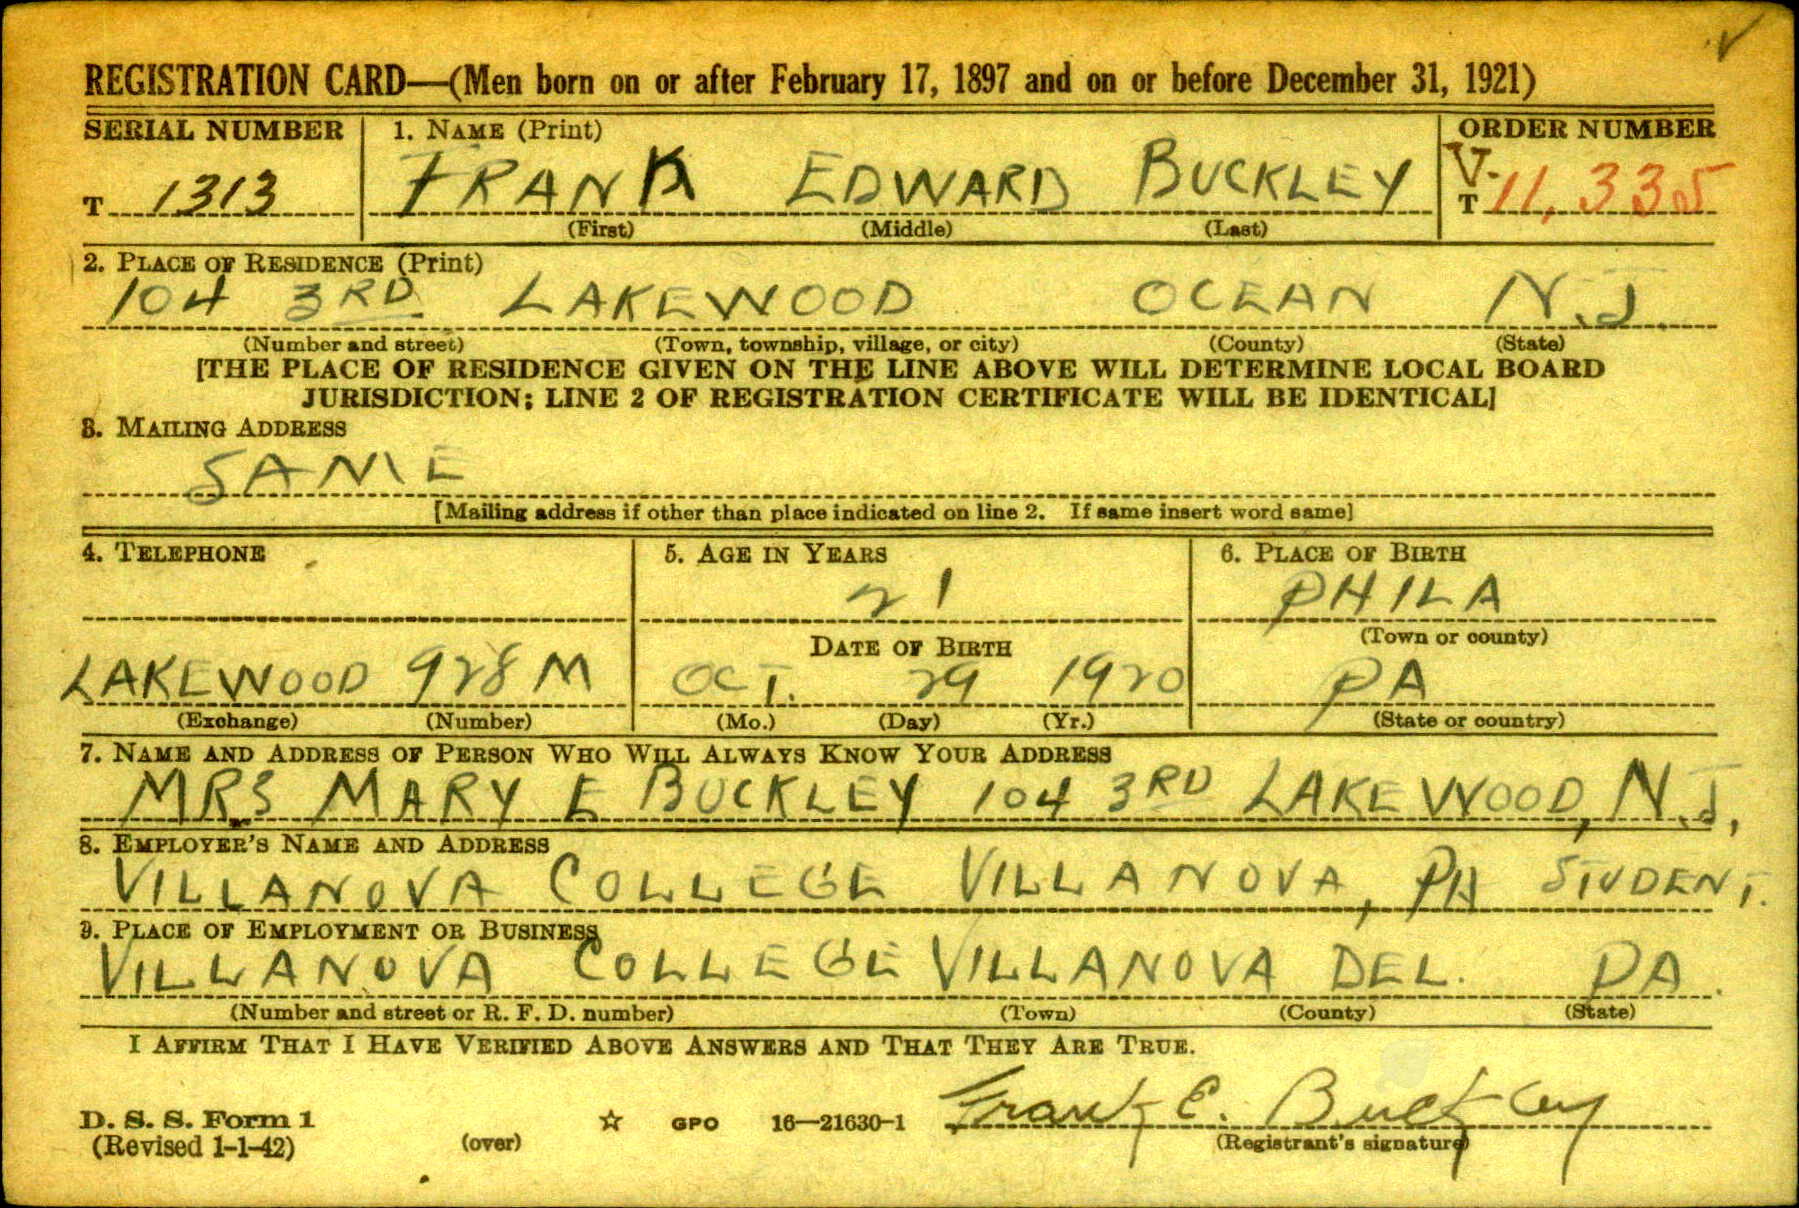 REGISTRATION CARD—(Men born on or after February 17, 1897 and on or before December 31, 1921)
SERIAL NUMBER 1. NAME (Print) ORDER NUMBER
T 1313 FRANK EDWARD BUCKLEY V- T 11,335
(First) (Middle) (Last)
2. PLACE OF RESIDENCE (Print)
104 3RD LAKEWOOD OCEAN N.J.
(Number and street) (Town, township, village, or city) (County) (State)
[THE PLACE OF RESIDENCE GIVEN ON THE LINE ABOVE WILL DETERMINE LOCAL BOARD
JURISDICTION; LINE 2 OF REGISTRATION CERTIFICATE WILL BE IDENTICAL]
3. MAILING ADDRESS
SAME
[Mailing address if other than place indicated on line 2. If same insert word same]
4. TELEPHONE 5. AGE IN YEARS 6. PLACE OF BIRTH
21 PHILA
DATE OF BIRTH (Town or county)
LAKEWOOD 928 M OCT. 29 1920 PA
(Exchange) (Number) (Mo.) (Day) (Yr.) (State or country)
7. NAME AND ADDRESS OF PERSON WHO WILL ALWAYS KNOW YOUR ADDRESS
MRS MARY E BUCKLEY 104 3RD LAKEWOOD, N.J.,
8. EMPLOYER'S NAME AND ADDRESS
VILLANOVA COLLEGE VILLANOVA, PA STUDENT.
9. PLACE OF EMPLOYMENT OR BUSINESS
VILLANOVA COLLEGE VILLANOVA DEL. PA.
(Number and street or R. F. D. number) (Town) (County) (State)
I AFFIRM THAT I HAVE VERIFIED ABOVE ANSWERS AND THAT THEY ARE TRUE.
D. S. S. Form 1 ☆ GPO 16—21630-1 Frank E. Buckley
(Revised 1-1-42) (over) (Registrant's signature)